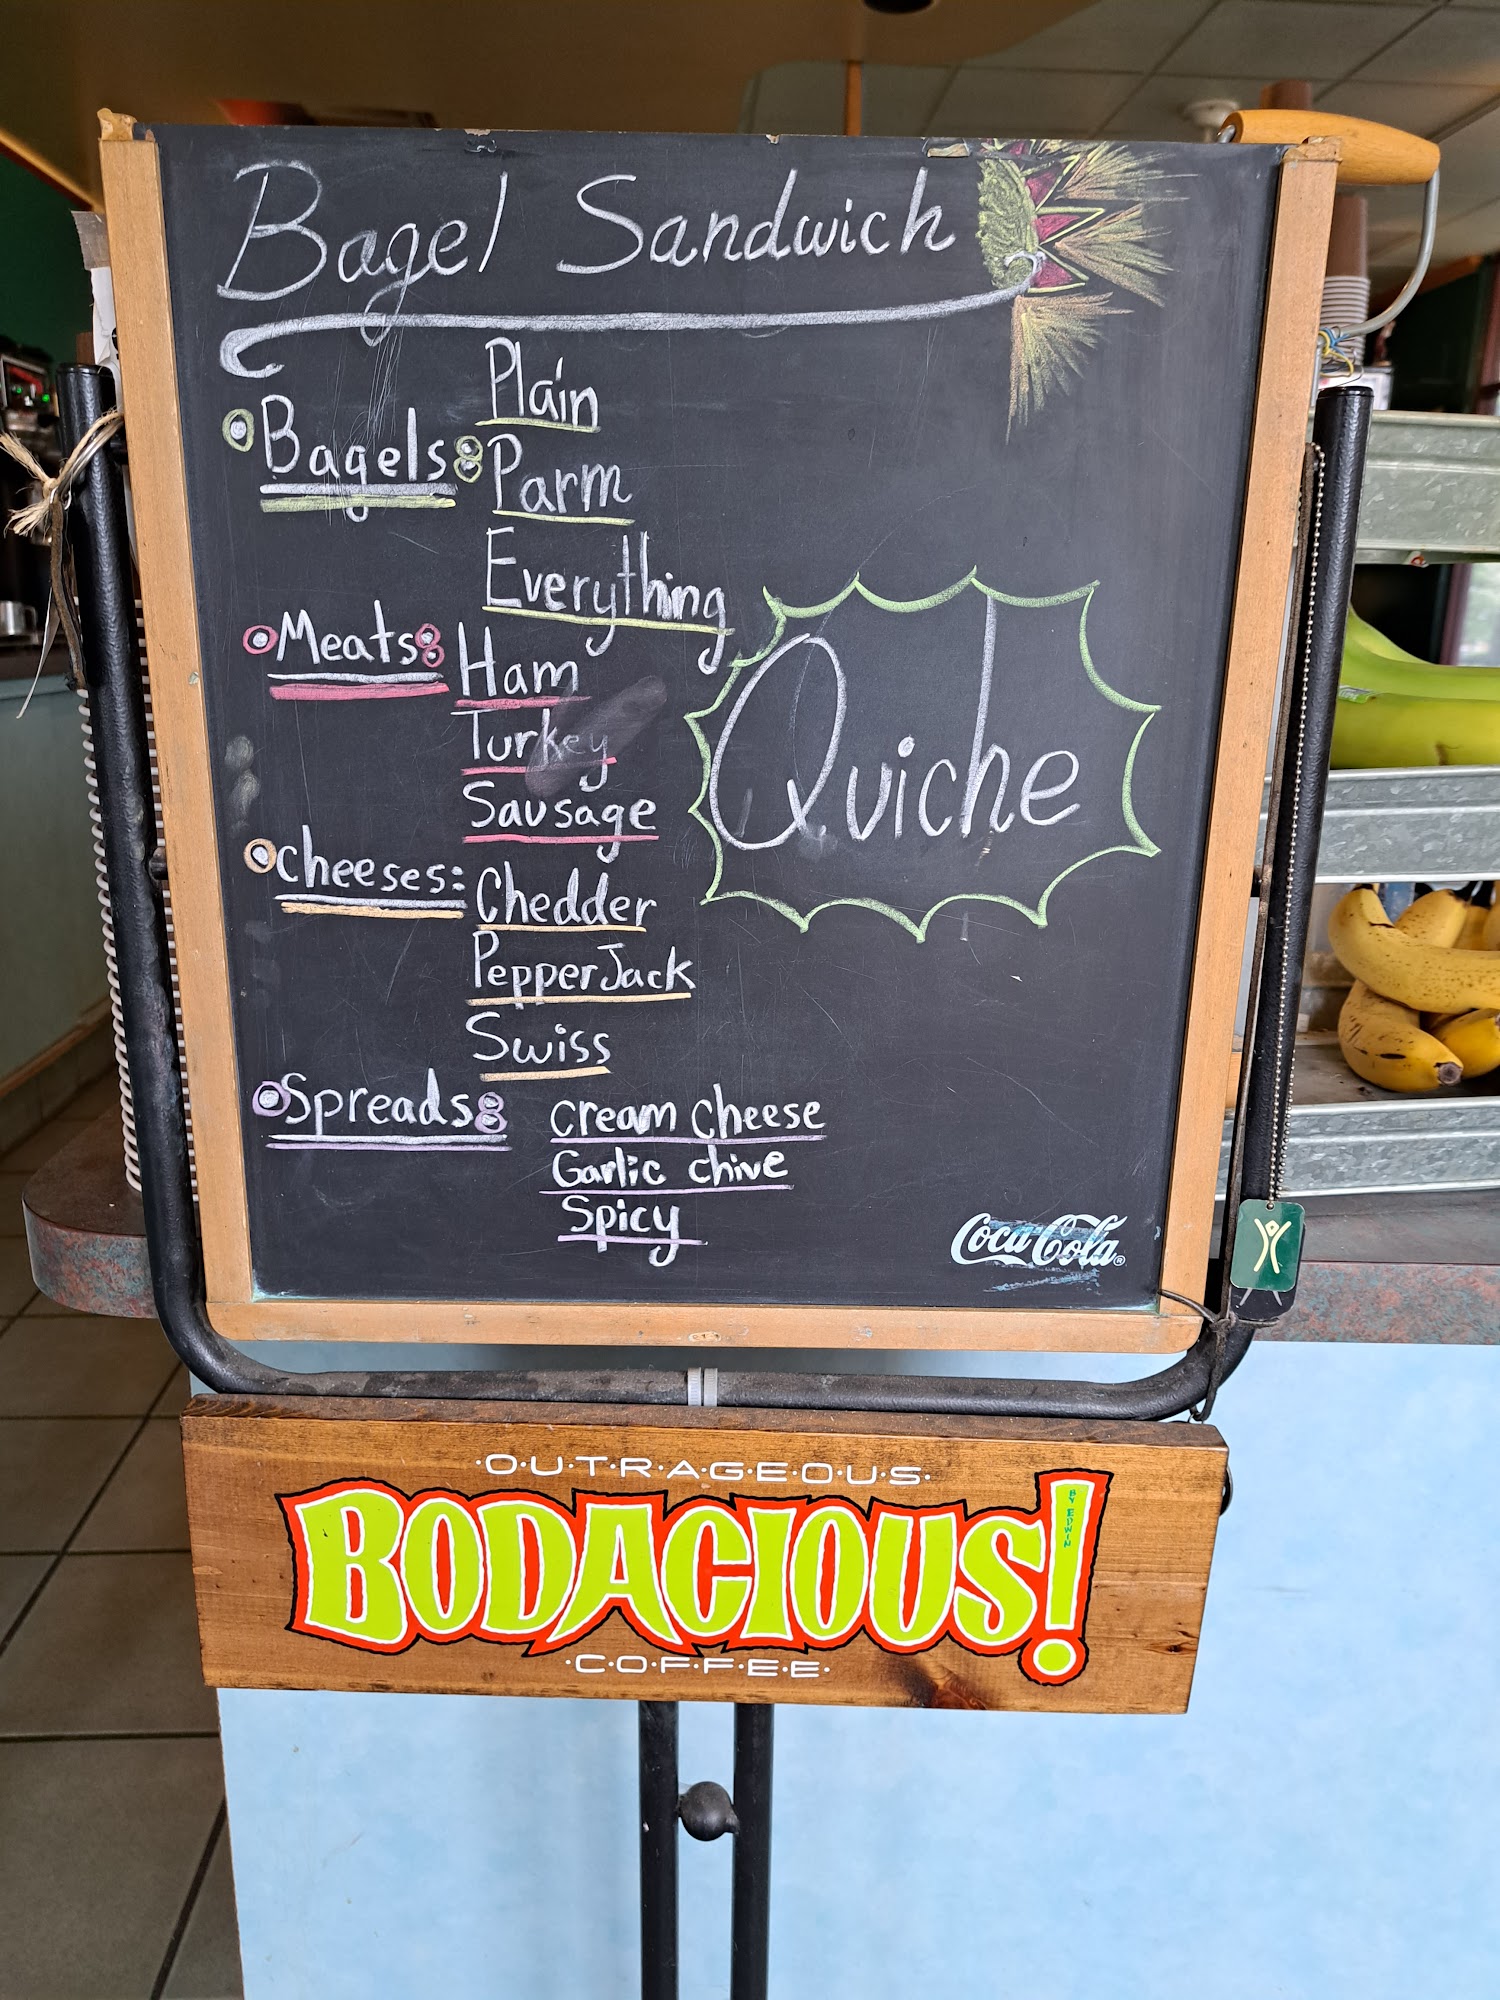 Bagel Sandwich
Bagels:
Plain
Parm
Everything
Meats:
Ham
Turkey
Sausage
cheeses:
Chedder
PepperJack
Swiss
Quiche
Spreads:
cream cheese
Garlic chive
Spicy
Coca-Cola®
·O·U·T·R·A·G·E·O·U·S·
BODACIOUS!
BY EDWIN
·C·O·F·F·E·E·